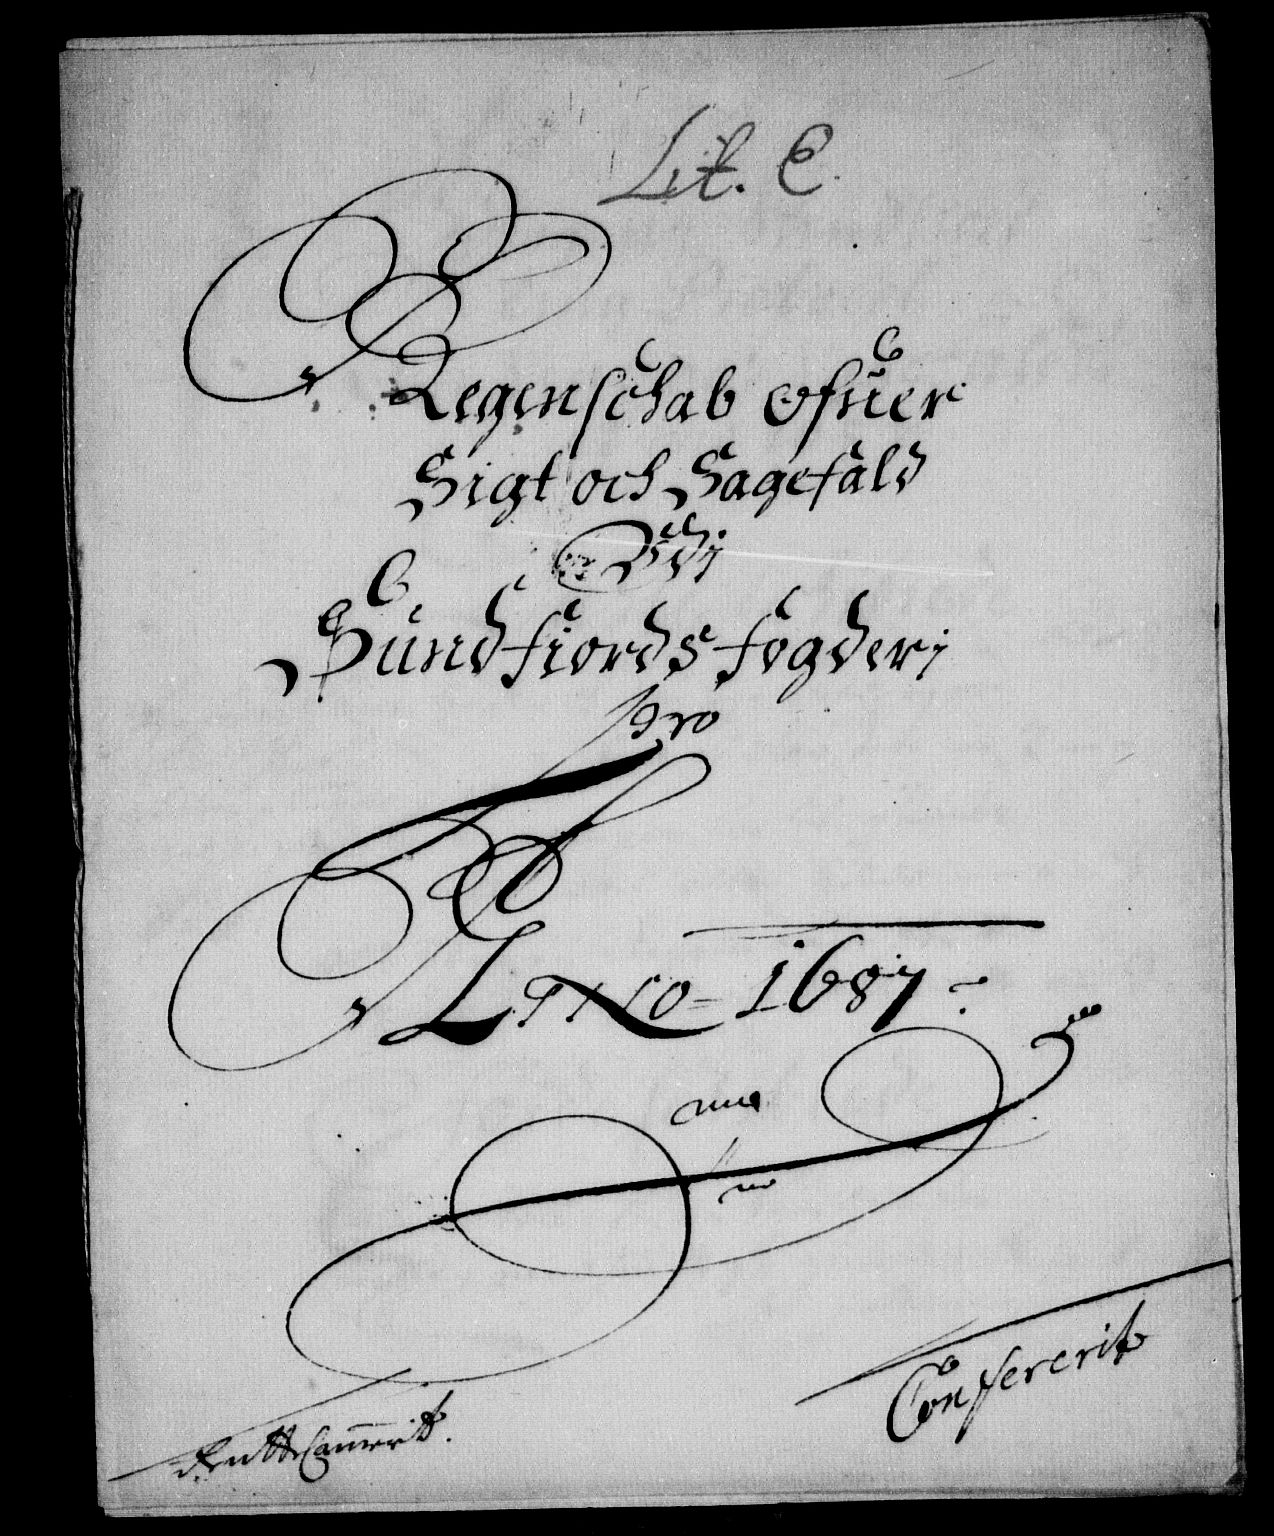 Lit. C
Regenschab ofuer
Sigt och Sagefald
Udj
Sundfiords fogderj
pro
Anno 1687
Confererit